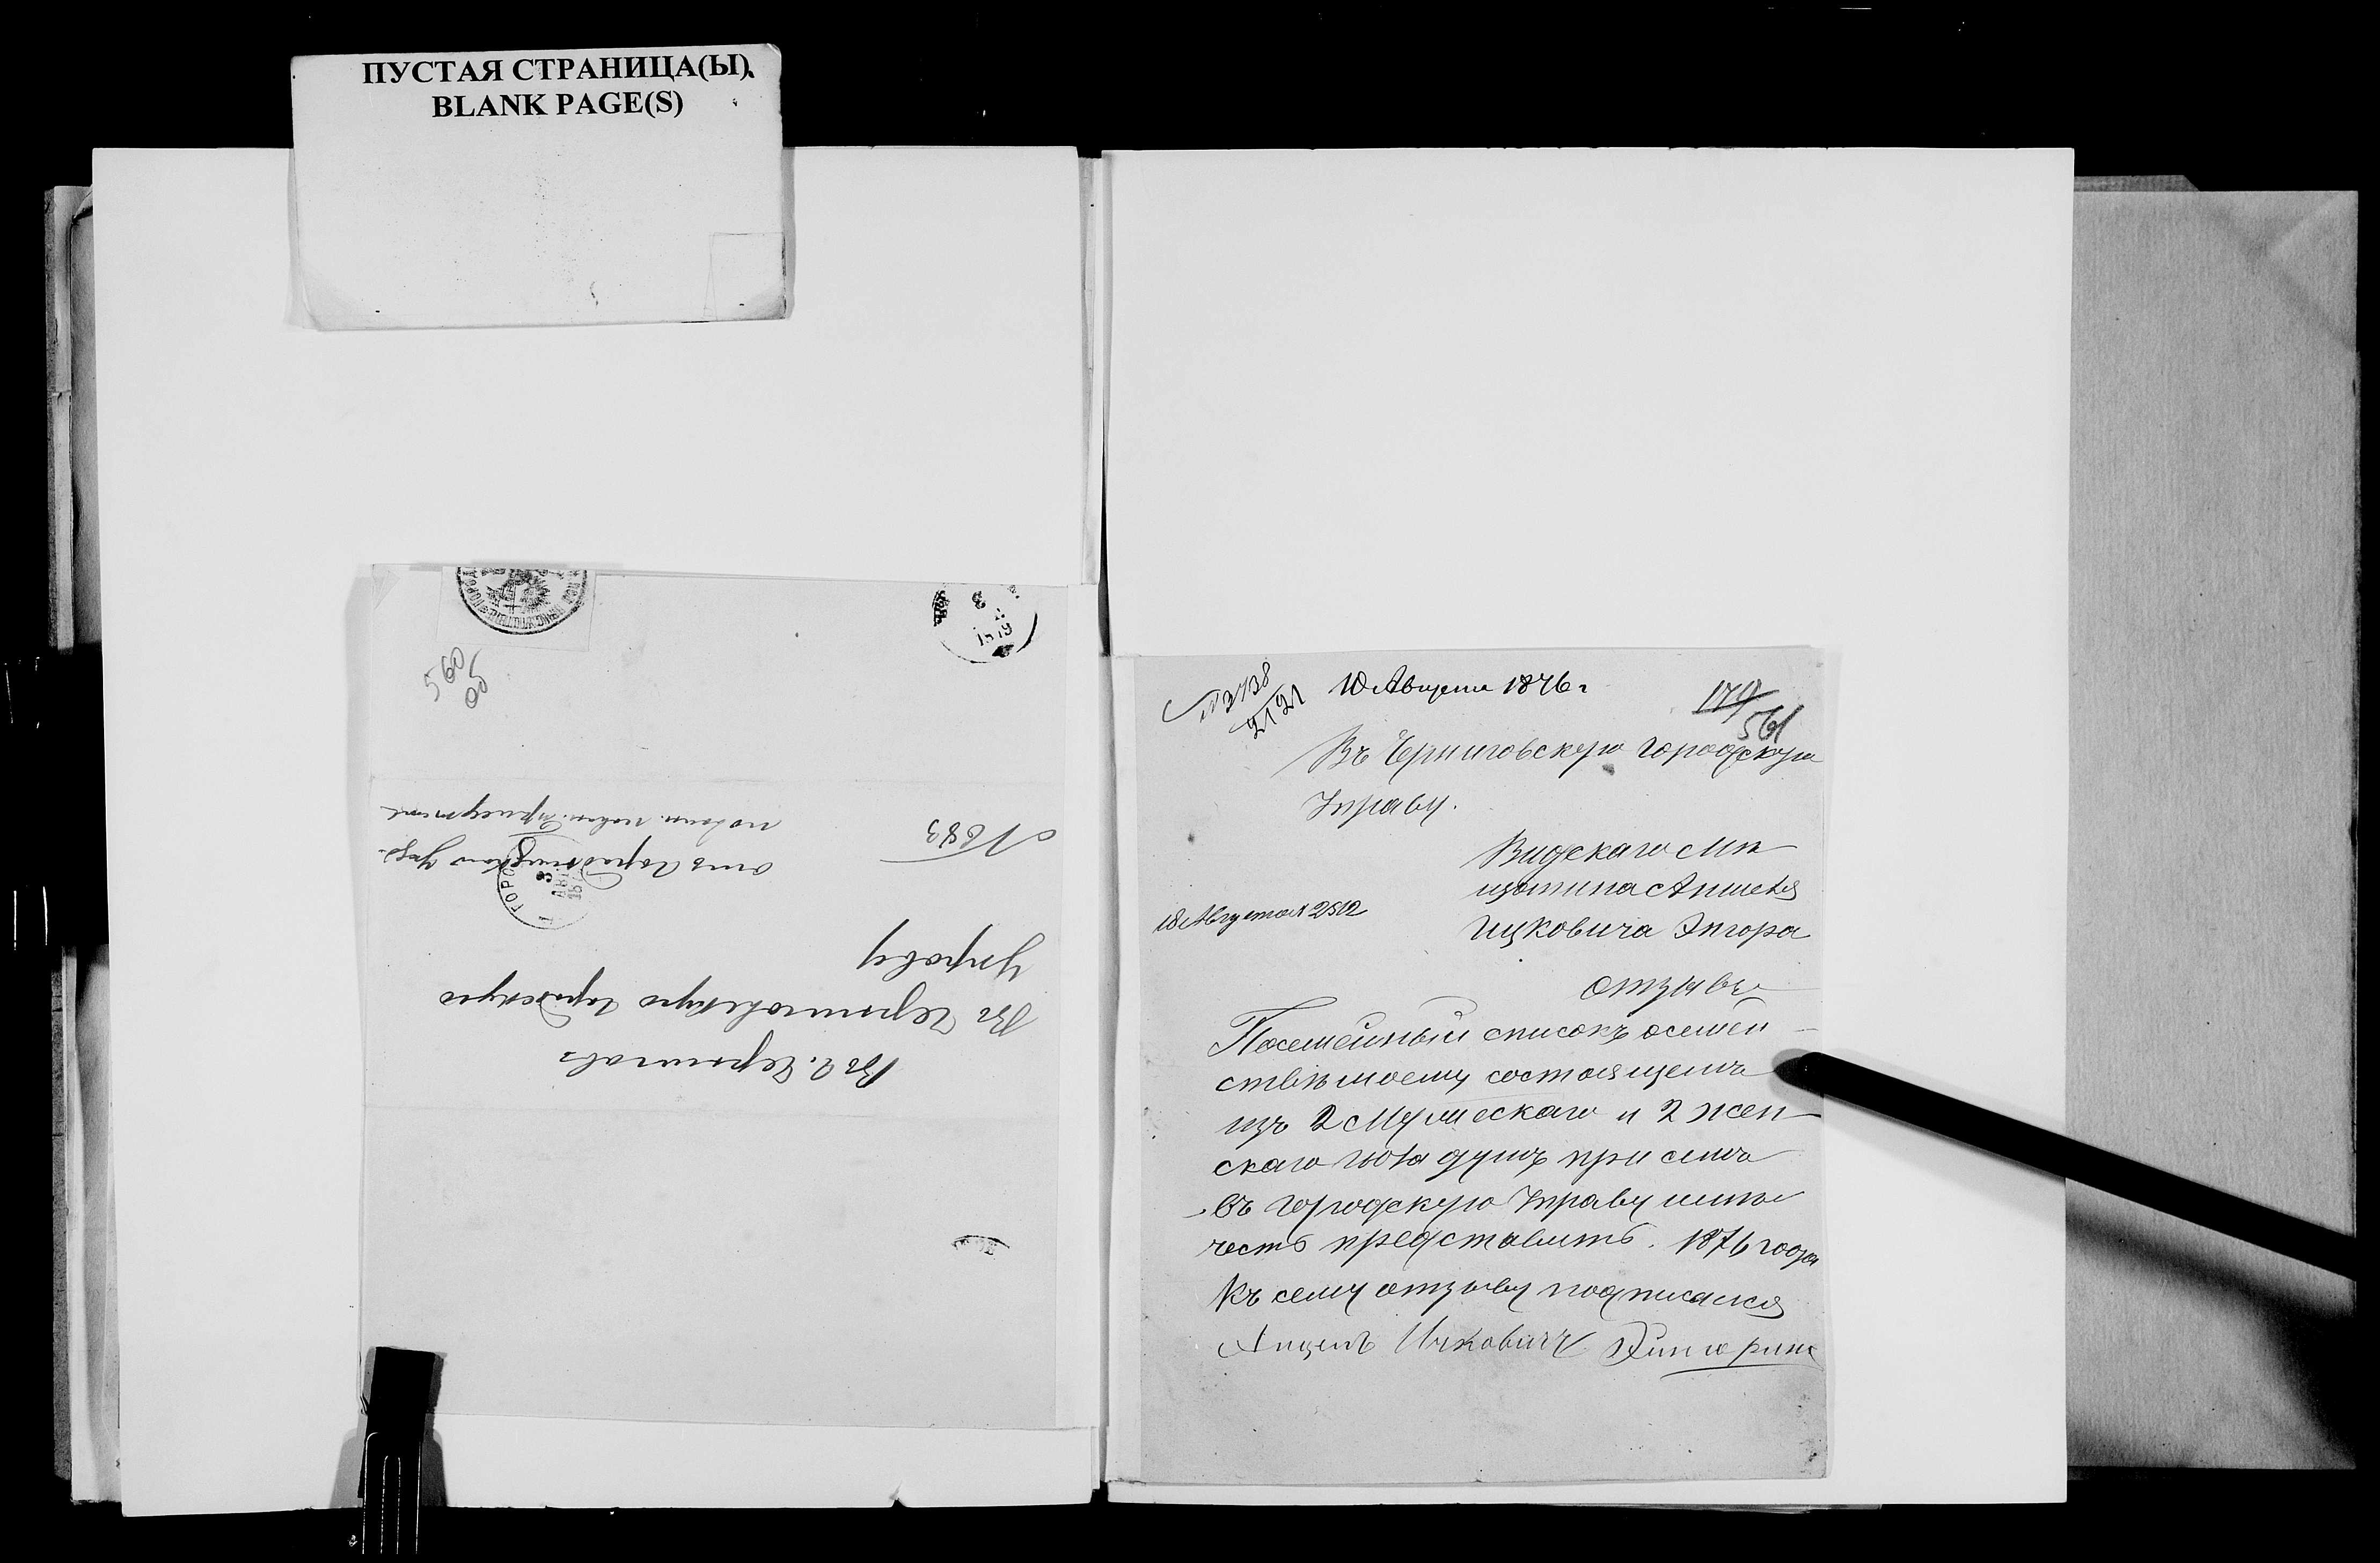 ПУСТАЯ СТРАНИЦА(Ы)
BLANK PAGE(S)
560
Въ г. Черниговъ
Въ Черниговскую Городскую
Управу
отъ Городницкаго Уѣзд.
повин. Присутствія
N 683
1879
N 3738
2121
10 Августа 1876 г
179
561
Въ Черниговскую Городскую
Управу.
Видскаго Мѣ
щанина Аншеля
Ицковича Энгора
18 Августа N 2512
отзывъ
Посемейный списокъ осемей
ствѣ моему состоящемъ
изъ 2 Мужескаго и 2 жен
скаго пола душъ при семъ
въ городскую Управу имѣю
честь представить. 1876 года
Къ сему отзыву подписался
Анцель Ицковичъ